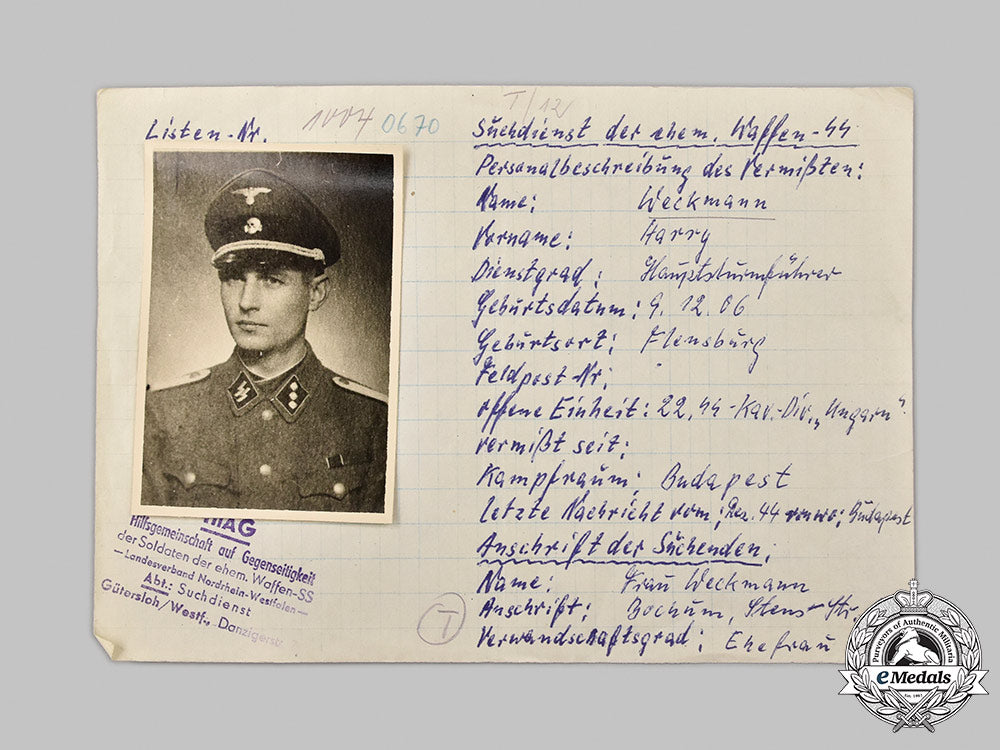 T/12
Listen-Nr. 1004 0670
Suchdienst der ehem. Waffen-SS
Personalbeschreibung des Vermißten:
Name: Weckmann
Vorname: Harry
Dienstgrad: Hauptsturmführer
Geburtsdatum: 9. 12. 06
Geburtsort: Flensburg
Feldpost Nr:
offene Einheit: 22. SS-Kav.-Div. „Ungarn"
vermißt seit:
Kampfraum: Budapest
letzte Nachricht vom: Dez. 44 von wo: Budapest
Anschrift der Suchenden:
Name: Frau Weckmann
Anschrift: Bochum, Str.
Verwandschaftsgrad: Ehefrau
T
HIAG
Hilfsgemeinschaft auf Gegenseitigkeit
der Soldaten der ehem. Waffen-SS
—Landesverband Nordrhein-Westfalen—
Abt.: Suchdienst
Gütersloh/Westf., Danzigerstr.
Purveyors of Authentic Militaria
eMedals